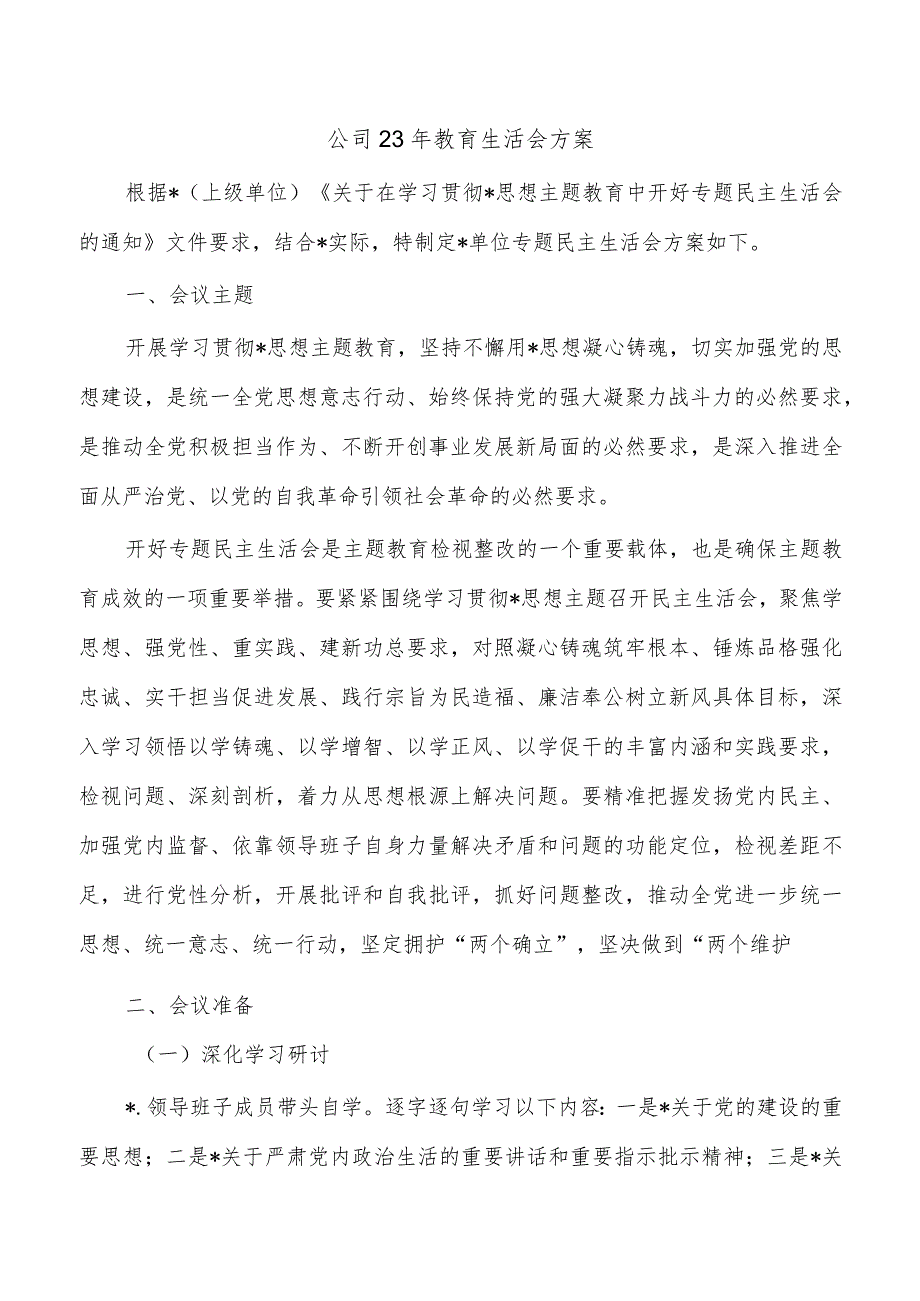 公司 23 年教育生活会方案
根据*（上级单位）《关于在学习贯彻*思想主题教育中开好专题民主生活会
的通知》文件要求，结合*实际，特制定*单位专题民主生活会方案如下。
一、会议主题
开展学习贯彻*思想主题教育，坚持不懈用*思想凝心铸魂，切实加强党的思
想建设，是统一全党思想意志行动、始终保持党的强大凝聚力战斗力的必然要求，
是推动全党积极担当作为、不断开创事业发展新局面的必然要求，是深入推进全
面从严治党、以党的自我革命引领社会革命的必然要求。
开好专题民主生活会是主题教育检视整改的一个重要载体，也是确保主题教
育成效的一项重要举措。要紧紧围绕学习贯彻*思想主题召开民主生活会，聚焦学
思想、强党性、重实践、建新功总要求，对照凝心铸魂筑牢根本、锤炼品格强化
忠诚、实干担当促进发展、践行宗旨为民造福、廉洁奉公树立新风具体目标，深
入学习领悟以学铸魂、以学增智、以学正风、以学促干的丰富内涵和实践要求，
检视问题、深刻剖析，着力从思想根源上解决问题。要精准把握发扬党内民主、
加强党内监督、依靠领导班子自身力量解决矛盾和问题的功能定位，检视差距不
足，进行党性分析，开展批评和自我批评，抓好问题整改，推动全党进一步统一
思想、统一意志、统一行动，坚定拥护“两个确立”，坚决做到“两个维护
二、会议准备
（一）深化学习研讨
*.领导班子成员带头自学。逐字逐句学习以下内容：一是*关于党的建设的重
要思想；二是*关于严肃党内政治生活的重要讲话和重要指示批示精神；三是*关